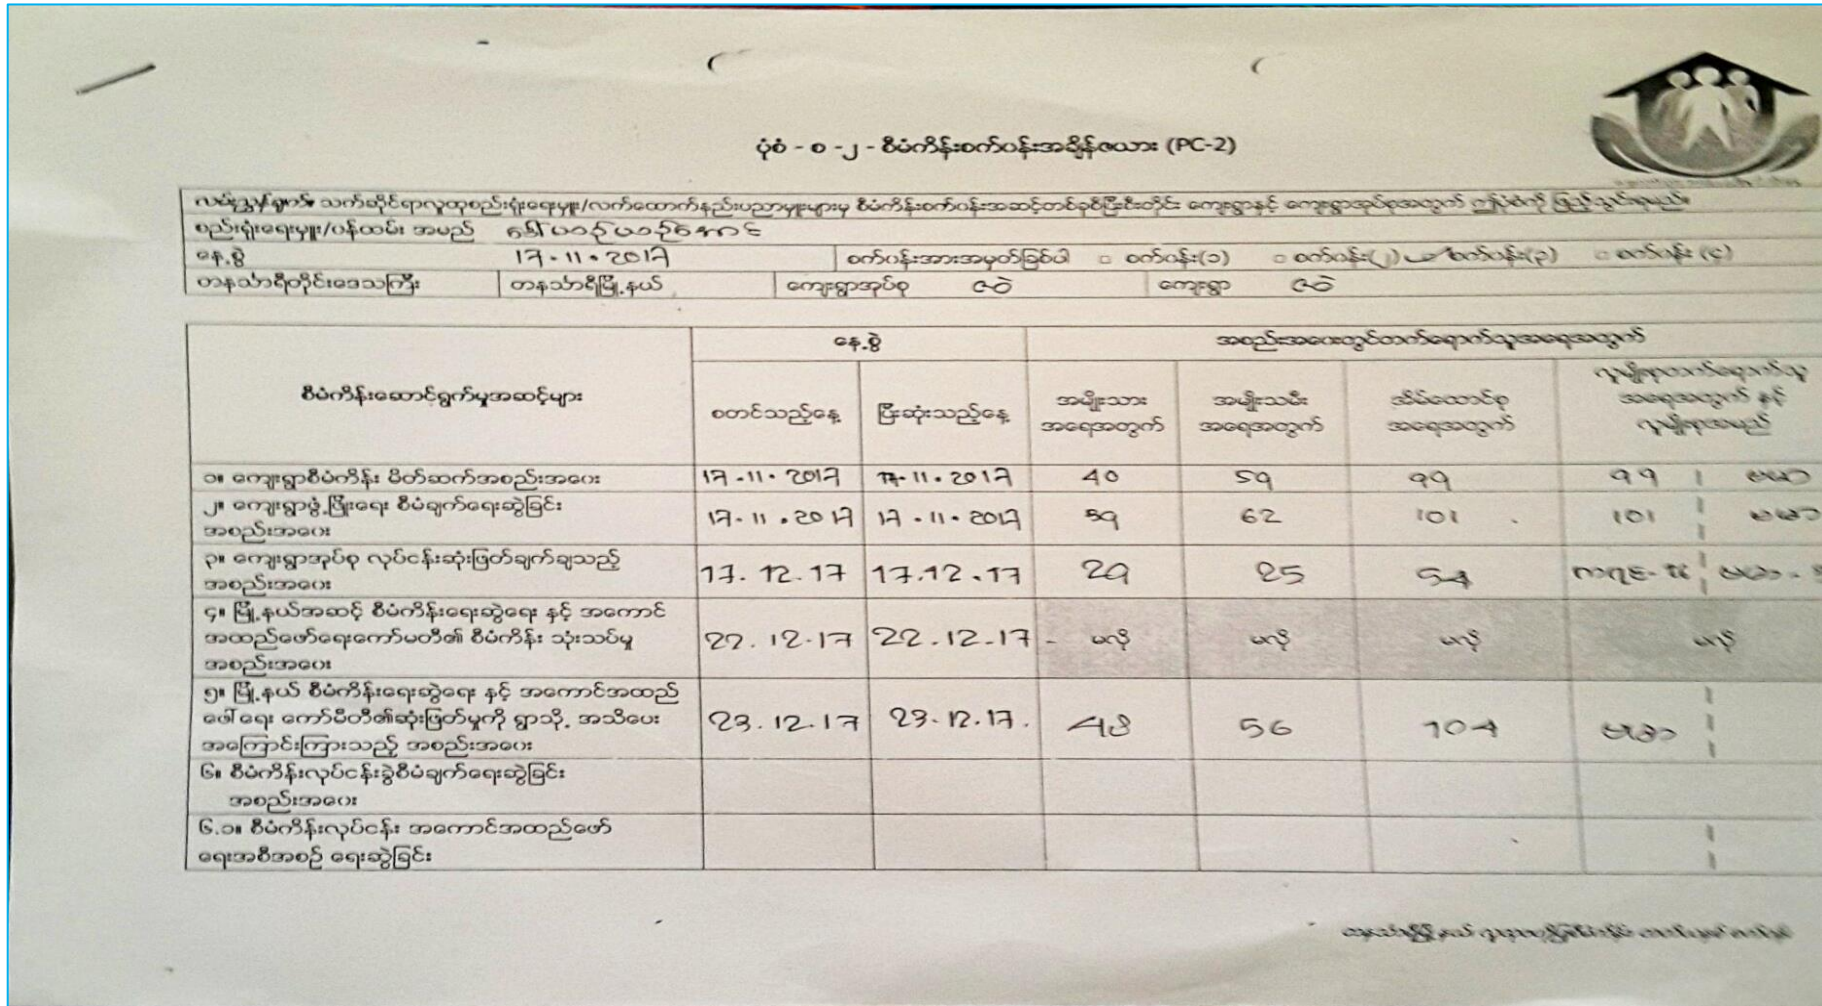 ပုံစံ - စ -၂ - စီမံကိန်းစက်ဝန်းအချိန်ဇယား (PC-2)
လမ်းညွှန်ချက်။ သက်ဆိုင်ရာလူထုစည်းရုံးရေးမှူး/လက်ထောက်နည်းပညာမှူးများမှ စီမံကိန်းစက်ဝန်းအဆင့်တစ်ခုစီပြီးစီးတိုင်း ကျေးရွာနှင့် ကျေးရွာအုပ်စုအတွက် ဤပုံစံကို ဖြည့်သွင်းရမည်။
စည်းရုံးရေးမှူး/ဝန်ထမ်း အမည် ဒေါ်ယဉ်ယဉ်အောင်
နေ့စွဲ 17.11.2017 စက်ဝန်းအားအမှတ်ခြစ်ပါ □ စက်ဝန်း(၁) □ စက်ဝန်း(၂) စက်ဝန်း(၃) □ စက်ဝန်း (၄)
တနင်္သာရီတိုင်းဒေသကြီး တနင်္သာရီမြို့နယ် ကျေးရွာအုပ်စု ဇဝဲ ကျေးရွာ ဇဝဲ
စီမံကိန်းဆောင်ရွက်မှုအဆင့်များ နေ့စွဲ အစည်းအဝေးတွင်တက်ရောက်သူအရေအတွက်
စတင်သည့်နေ့ ပြီးဆုံးသည့်နေ့ အမျိုးသား အရေအတွက် အမျိုးသမီး အရေအတွက် အိမ်ထောင်စု အရေအတွက် လူမျိုးစုတက်ရောက်သူ
အရေအတွက် နှင့်
လူမျိုးစုအမည်
၁။ ကျေးရွာစီမံကိန်း မိတ်ဆက်အစည်းအဝေး 17.11.2017 17.11.2017 40 59 99 99 ဗမာ
၂။ ကျေးရွာဖွံ့ဖြိုးရေး စီမံချက်ရေးဆွဲခြင်း
အစည်းအဝေး 17.11.2017 17.11.2017 39 62 101 101 ဗမာ
၃။ ကျေးရွာအုပ်စု လုပ်ငန်းဆုံးဖြတ်ချက်ချသည့်
အစည်းအဝေး 17.12.17 17.12.17 29 25 54 ဗမာ
၄။ မြို့နယ်အဆင့် စီမံကိန်းရေးဆွဲရေး နှင့် အကောင်
အထည်ဖော်ရေးကော်မတီ၏ စီမံကိန်း သုံးသပ်မှု
အစည်းအဝေး 22.12.17 22.12.17 မလို မလို မလို မလို
၅။ မြို့နယ် စီမံကိန်းရေးဆွဲရေး နှင့် အကောင်အထည်
ဖေါ်ရေး ကော်မီတီ၏ဆုံးဖြတ်မှုကို ရွာသို့ အသိပေး
အကြောင်းကြားသည့် အစည်းအဝေး 23.12.17 23.12.17. 48 56 104 ဗမာ
၆။ စီမံကိန်းလုပ်ငန်းခွဲစီမံချက်ရေးဆွဲခြင်း
အစည်းအဝေး
၆.၁။ စီမံကိန်းလုပ်ငန်း အကောင်အထည်ဖော်
ရေးအစီအစဉ် ရေးဆွဲခြင်း